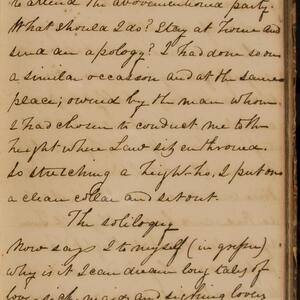 to attend the abovementioned party.
What should I do? Stay at home and
send an apology? I had done so on
a similar occasion and at the same
place; owned by the man whom
I had chosen to conduct me to the
height where Law sits enthroned.
So stretching a height-ho, I put on
a clean collar and set out.
The soliloquy
Now says I to myself (in
why is it I can dream long tales of
love-sick maids and sighing lovers